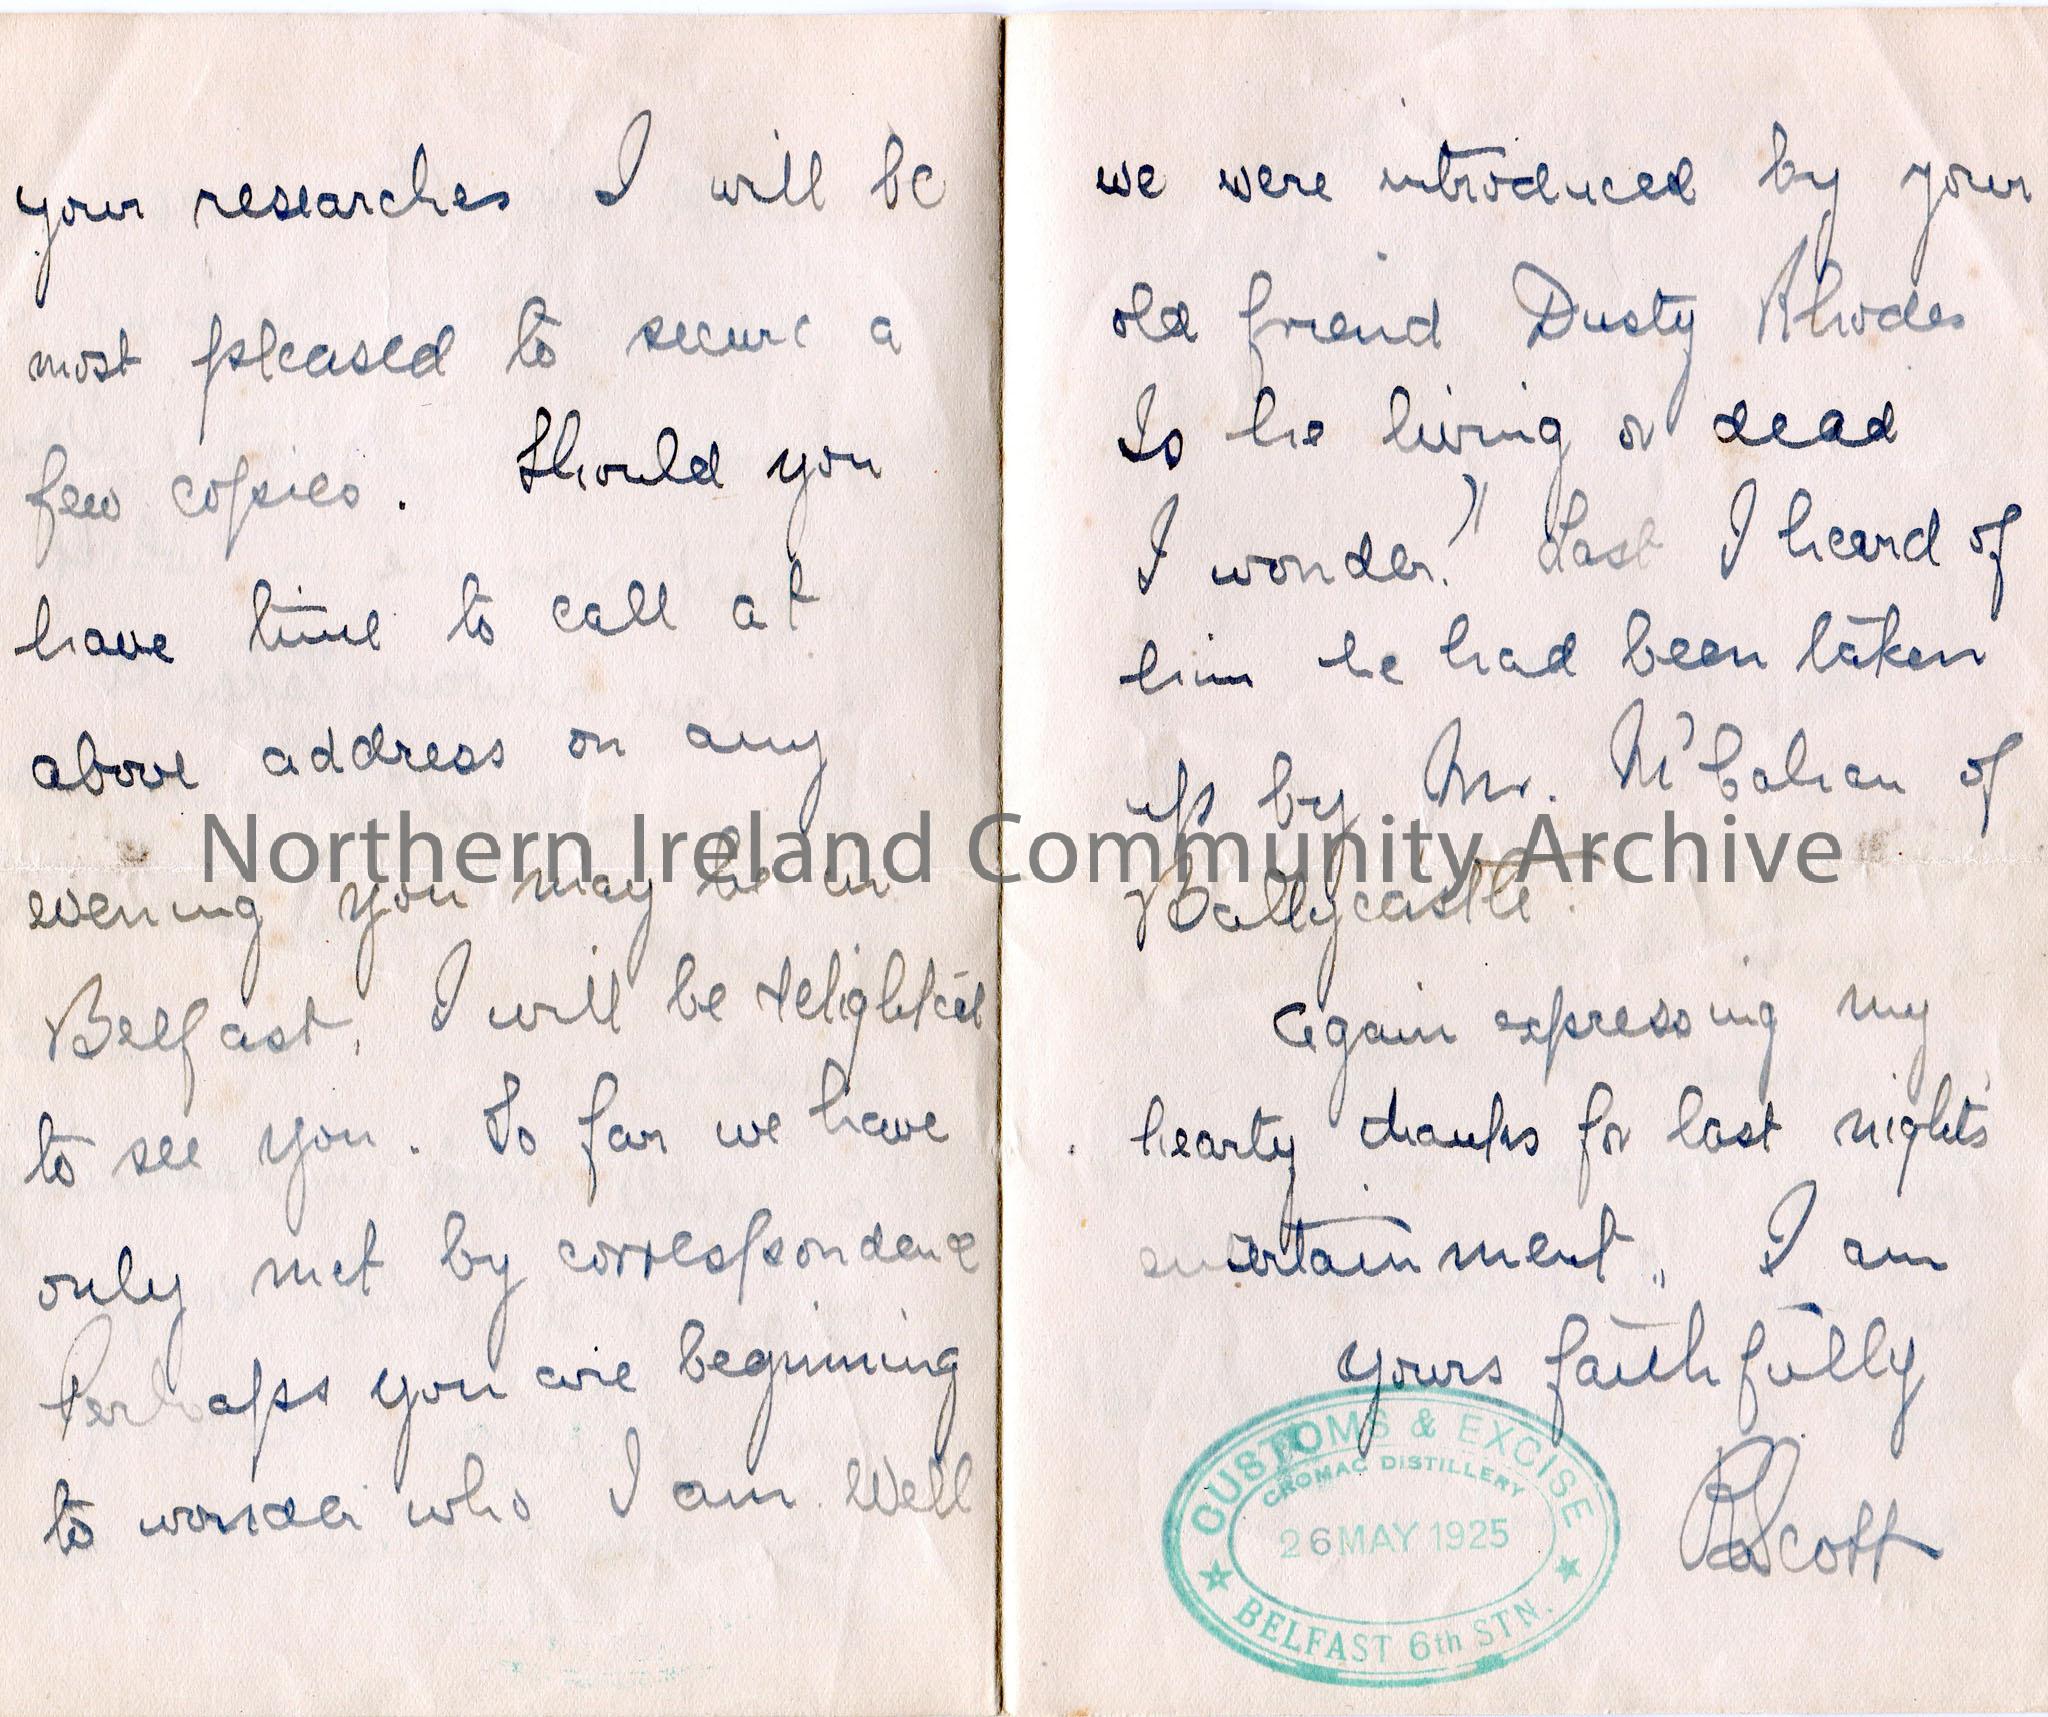 your researches I will be
most pleased to secure a
few copies. Should you
have time to call at
above address on any
evening you may be in
Belfast, I will be delighted
to see you. So far we have
only met by correspondence
Perhaps you are beginning
to wonder who I am. Well
we were introduced by your
old friend Dusty Rhodes
Is he living or dead
I wonder! Last I heard of
him he had been taken
up by Mr. M'Cahan of
Ballycastle.
Again expressing my
hearty thanks for last nights
entertainment, I am
Yours faithfully
Scott
CUSTOMS & EXCISE
CROMAC DISTILLERY
26 MAY 1925
BELFAST 6th STN.
Northern Ireland Community Archive